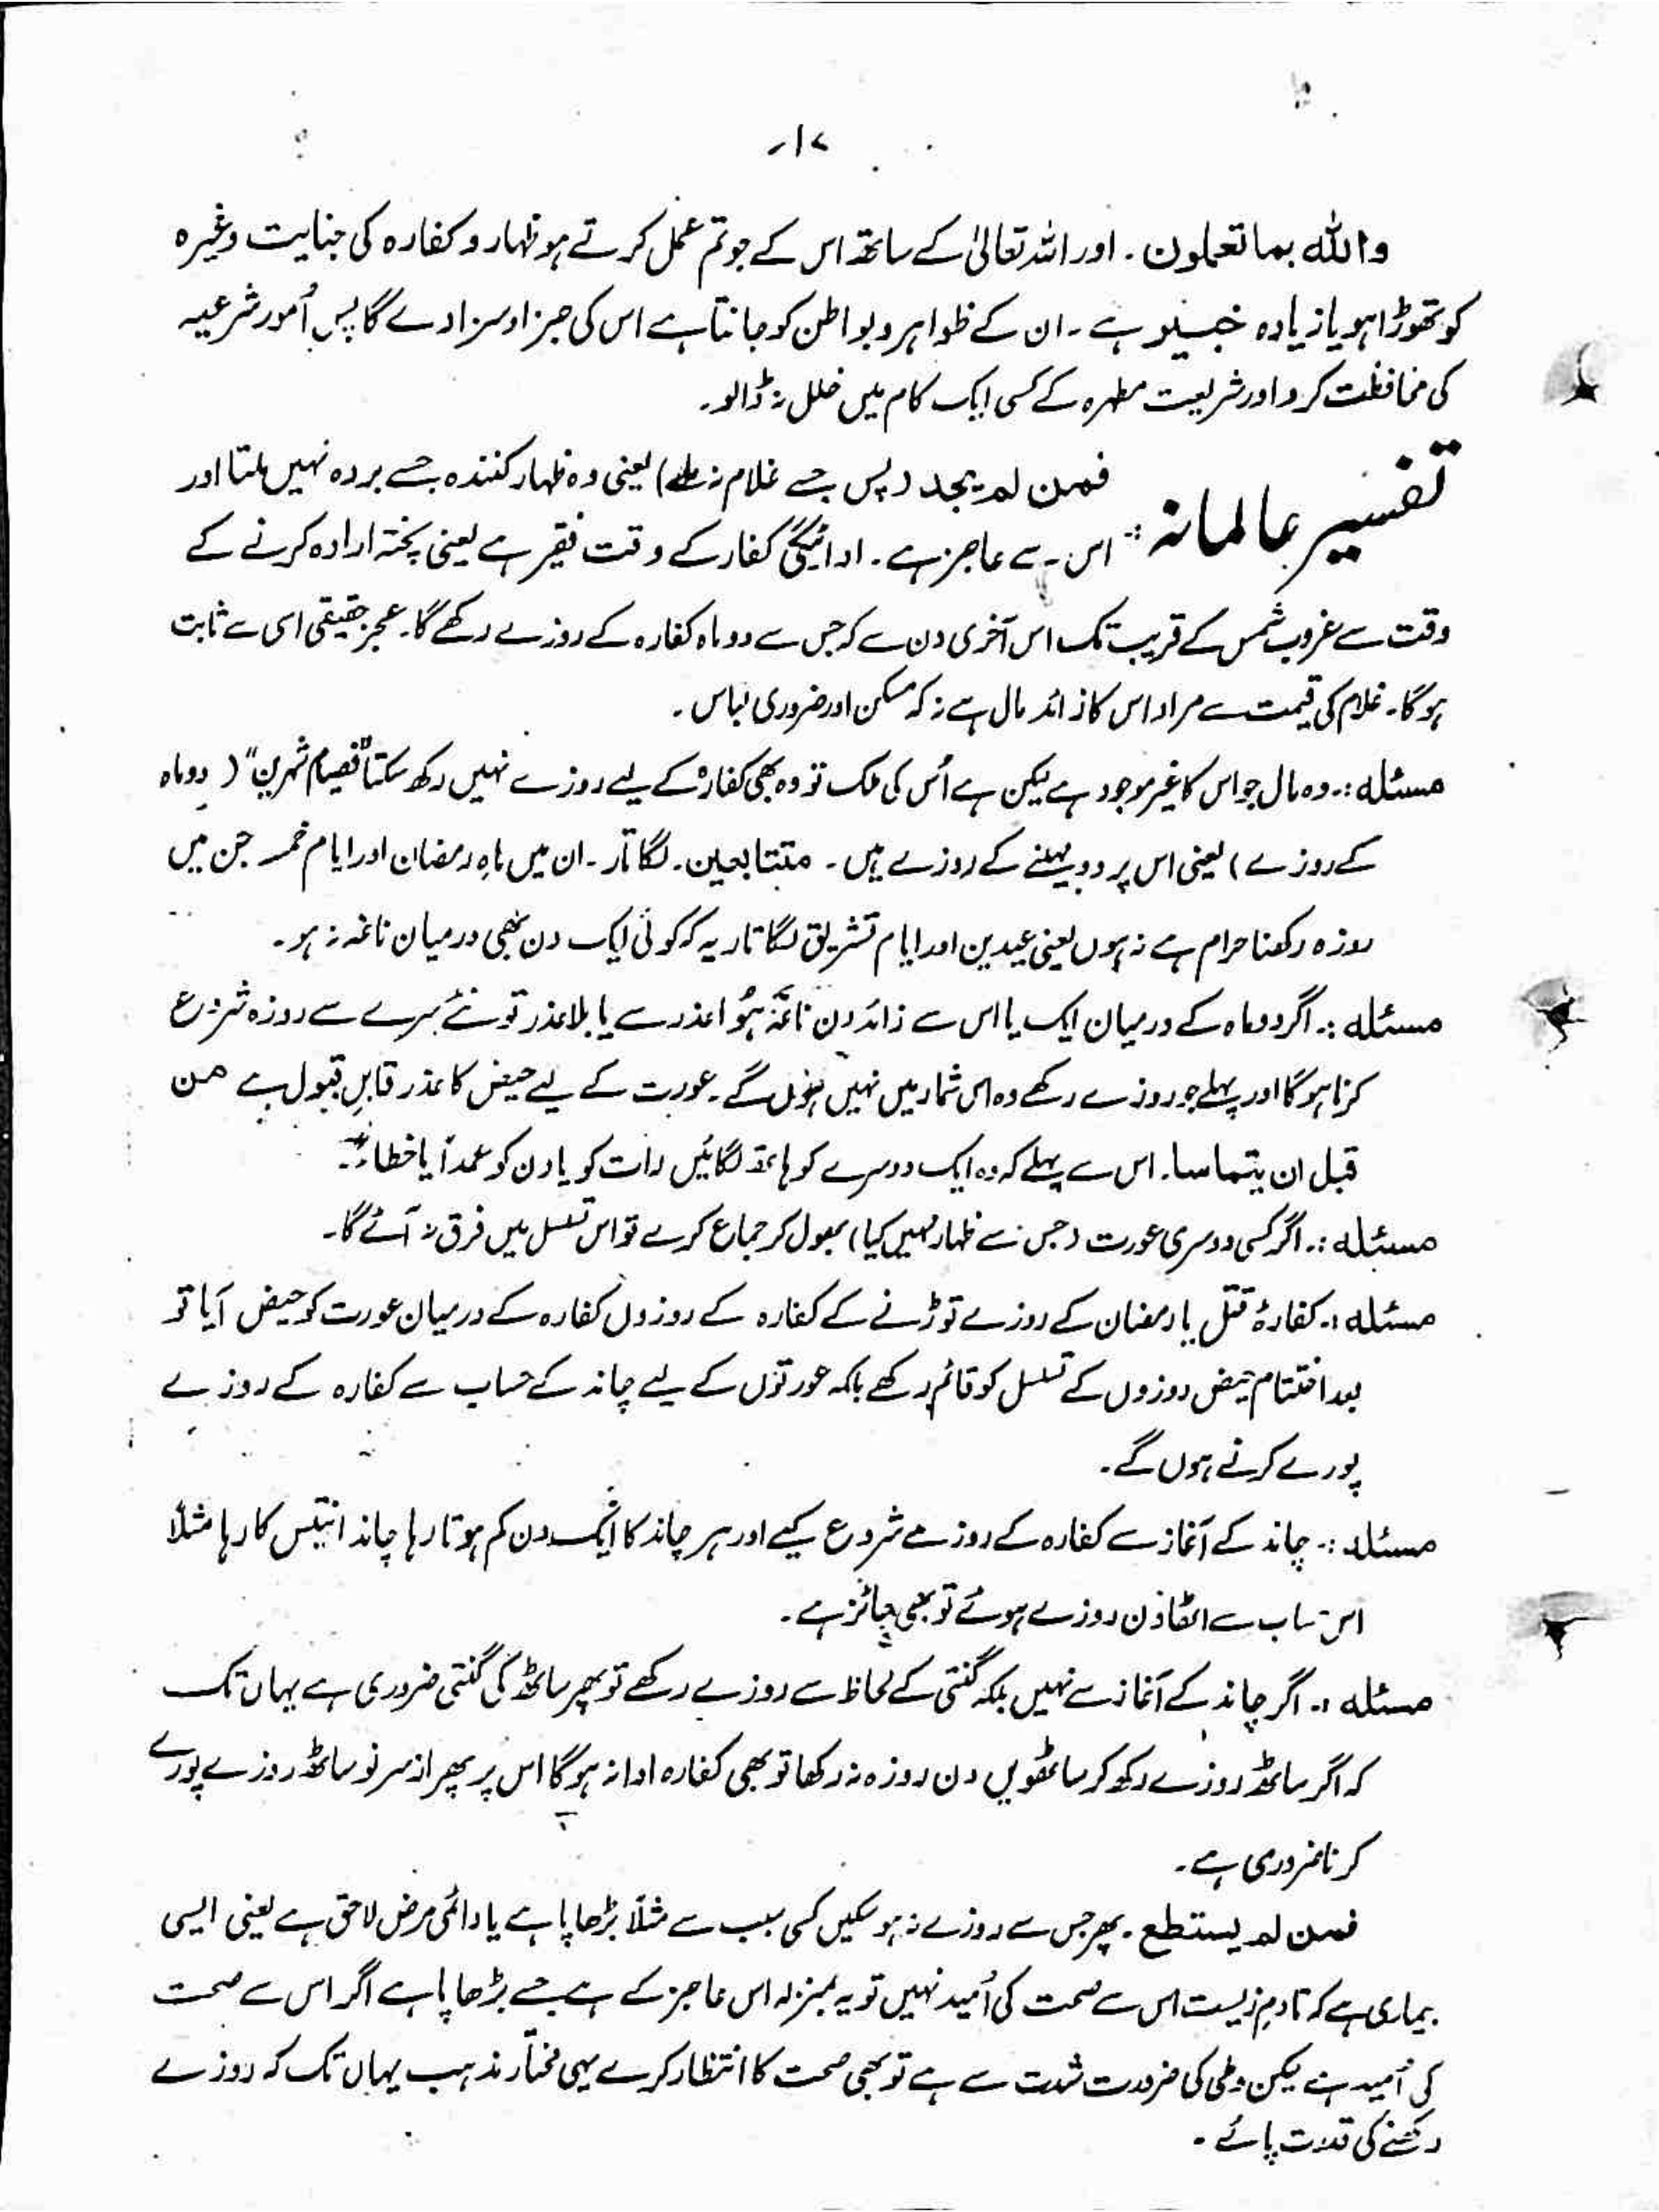 ۱۷
والله بما تعملون ۔ اور اللہ تعالیٰ کے ساتھ اس کے جو تم عمل کرتے ہو ظہار و کفارہ کی جنایت وغیرہ
کو تھوڑا ہو یا زیادہ خبیر ہے ۔ ان کے ظواہر و بواطن کو جانتا ہے اس کی جزا و سزا دے گا پس اُمور شرعیہ
کی محافظت کرو اور شریعت مطہرہ کے کسی ایک کام میں خلل نہ ڈالو۔
تفسیر عالمانہ :: فمن لم یجد (پس جسے غلام نہ ملے) یعنی وہ ظہار کنندہ جسے بردہ نہیں ملتا اور
اس سے عاجز ہے۔ ادائیگی کفار کے وقت فقیر ہے یعنی پختہ ارادہ کرنے کے
وقت سے غروب شمس کے قریب تک اس آخری دن سے کہ جس سے دو ماہ کفارہ کے روزے رکھے گا۔ عجز حقیقی اسی سے ثابت
ہوگا۔ غلام کی قیمت سے مراد اس کا زائد مال ہے نہ کہ مسکن اور ضروری لباس ۔
مسئلہ :۔ وہ مال جو اس کا غیر موجود ہے لیکن ہے اُس کی ملک تو وہ بھی کفارہ کے لیے روزے نہیں رکھ سکتا "فصیام شہرین" ( دو ماہ
کے روزے ) یعنی اس پر دو مہینے کے روزے ہیں ۔ متتابعین۔ لگا تار ۔ ان میں ماہِ رمضان اور ایام خمسہ جن میں
روزہ رکھنا حرام ہے نہ ہوں یعنی عیدین اور ایام تشریق لگا تار یہ کہ کوئی ایک دن بھی درمیان ناغہ نہ ہو۔
مسئلہ :۔ اگر دو ماہ کے درمیان ایک یا اس سے زائد دن ناغہ ہُوا عذر سے یا بلا عذر تو نئے سرے سے روزہ شروع
کرنا ہوگا اور پہلے جو روزے رکھے وہ اس شمار میں نہیں ہوں گے ۔ عورت کے لیے حیض کا عذر قابلِ قبول ہے من
قبل ان یتماسا۔ اس سے پہلے کہ وہ ایک دوسرے کو ہاتھ لگائیں رات کو یا دن کو عمداً یا خطاءً۔
مسئلہ :۔ اگر کسی دوسری عورت (جس نے ظہار نہیں کیا) بھول کر جماع کرے تو اس تسلسل میں فرق نہ آئے گا۔
مسئلہ :۔ کفارۂ قتل یا رمضان کے روزے توڑنے کے کفارہ کے روزوں کفارہ کے درمیان عورت کو حیض آیا تو
بعد اختتام حیض روزوں کے تسلسل کو قائم رکھے بلکہ عورتوں کے لیے چاند کے حساب سے کفارہ کے روزے
پورے کرنے ہوں گے۔
مسئلہ :۔ چاند کے آغاز سے کفارہ کے روزے شروع کیے اور ہر چاند کا ایک دن کم ہوتا رہا چاند انتیس کا رہا مثلاً
اس حساب سے اٹھاون روزے ہوئے تو بھی جائز ہے ۔
مسئلہ :۔ اگر چاند کے آغاز سے نہیں بلکہ گنتی کے لحاظ سے روزے رکھے تو پھر ساٹھ کی گنتی ضروری ہے یہاں تک
کہ اگر ساٹھ روزے رکھ کر ساٹھویں دن روزہ نہ رکھا تو بھی کفارہ ادا نہ ہوگا اس پر پھر از سر نو ساٹھ روزے پورے
کرنا ضروری ہے ۔
فمن لم یستطع ۔ پھر جس سے روزے نہ ہو سکیں کسی سبب سے مثلاً بڑھاپا ہے یا دائمی مرض لاحق ہے یعنی ایسی
بیماری ہے کہ تادم زیست اس سے صحت کی اُمید نہیں تو یہ بمنزلہ اس عاجز کے ہے جسے بڑھاپا ہے اگر اس سے صحت
کی اُمید ہے لیکن وطی کی ضرورت شدت سے ہے تو بھی صحت کا انتظار کرے یہی مختار مذہب یہاں تک کہ روزے
رکھنے کی قدرت پائے ۔